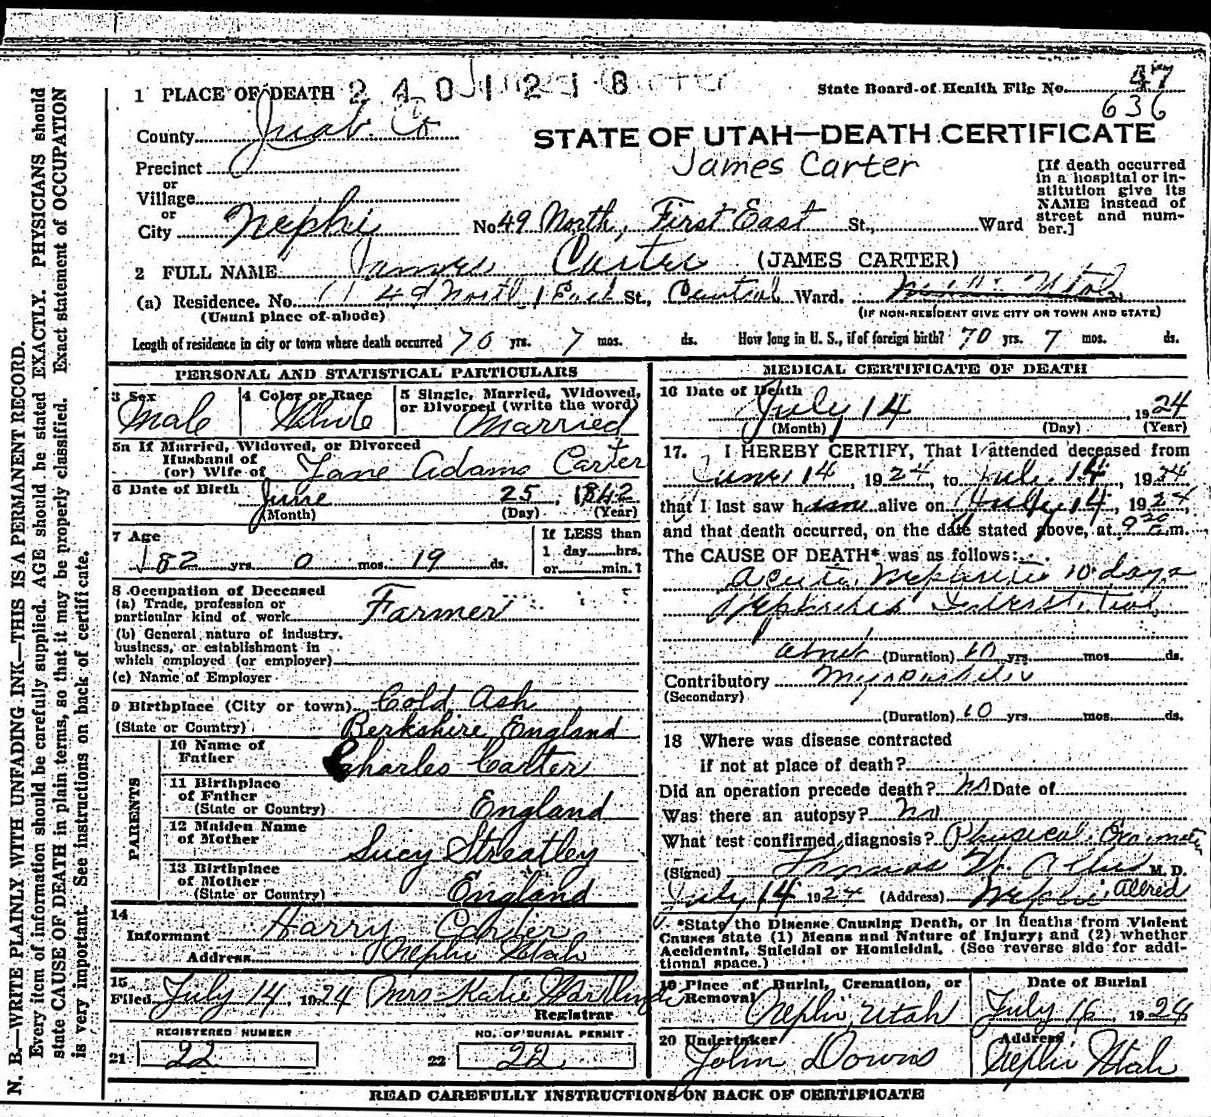 1 PLACE OF DEATH 2401218
State Board of Health File No. 47
636
County Juab Co
STATE OF UTAH—DEATH CERTIFICATE
James Carter
Precinct
or
Village
or
City Nephi No. 49 North, First East St., Ward
[If death occurred
in a hospital or in-
stitution give its
NAME instead of
street and num-
ber.]
2 FULL NAME James Carter (JAMES CARTER)
(a) Residence. No. 49 North 1 East St., Central Ward. Nephi Utah
(Usual place of abode) (IF NON-RESIDENT GIVE CITY OR TOWN AND STATE)
Length of residence in city or town where death occurred 70 yrs. 7 mos. ds. How long in U. S., if of foreign birth? 70 yrs. 7 mos. ds.
PERSONAL AND STATISTICAL PARTICULARS
3 Sex 4 Color or Race 5 Single, Married, Widowed,
or Divorced (write the word)
Male White Married
5a If Married, Widowed, or Divorced
Husband of
(or) Wife of Jane Adams Carter
6 Date of Birth June 25, 1842
(Month) (Day) (Year)
7 Age If LESS than
1 day hrs.
82 yrs. 0 mos. 19 ds. or min.?
8 Occupation of Deceased
(a) Trade, profession or
particular kind of work Farmer
(b) General nature of industry,
business, or establishment in
which employed (or employer)
(c) Name of Employer
9 Birthplace (City or town) Cold Ash
(State or Country) Berkshire England
PARENTS
10 Name of
Father Charles Carter
11 Birthplace
of Father
(State or Country) England
12 Maiden Name
of Mother Lucy Streatley
13 Birthplace
of Mother
(State or Country) England
14
Informant Harry Carter
Address Nephi Utah
15
Filed July 14 1924 Mrs Katie
Registrar
REGISTERED NUMBER NO. OF BURIAL PERMIT
21 22 22 22
MEDICAL CERTIFICATE OF DEATH
16 Date of Death
July 14 1924
(Month) (Day) (Year)
17. I HEREBY CERTIFY, That I attended deceased from
June 14, 1924, to July 14, 1924
that I last saw him alive on July 14, 1924,
and that death occurred, on the date stated above, at 9 m.
The CAUSE OF DEATH* was as follows:
Acute Nephritis 10 days
Nephritis Interstitial
about (Duration) 10 yrs mos ds.
Contributory
(Secondary)
(Duration) 10 yrs mos ds.
18 Where was disease contracted
if not at place of death?
Did an operation precede death? no Date of
Was there an autopsy? No
What test confirmed diagnosis? Physical Examination
(Signed) Thomas M. D.
July 14 1924 (Address) Nephi Allred
*State the Disease Causing Death, or in deaths from Violent
Causes state (1) Means and Nature of Injury; and (2) whether
Accidental, Suicidal or Homicidal. (See reverse side for addi-
tional space.)
19 Place of Burial, Cremation, or
Removal Nephi, Utah
Date of Burial
July 16 1924
20 Undertaker
John Downs
Address
Nephi Utah
READ CAREFULLY INSTRUCTIONS ON BACK OF CERTIFICATE
N. B.—WRITE PLAINLY WITH UNFADING INK—THIS IS A PERMANENT RECORD.
Every item of information should be carefully supplied. AGE should be stated EXACTLY. PHYSICIANS should
state CAUSE OF DEATH in plain terms, so that it may be properly classified. Exact statement of OCCUPATION
is very important. See instructions on back of certificate.